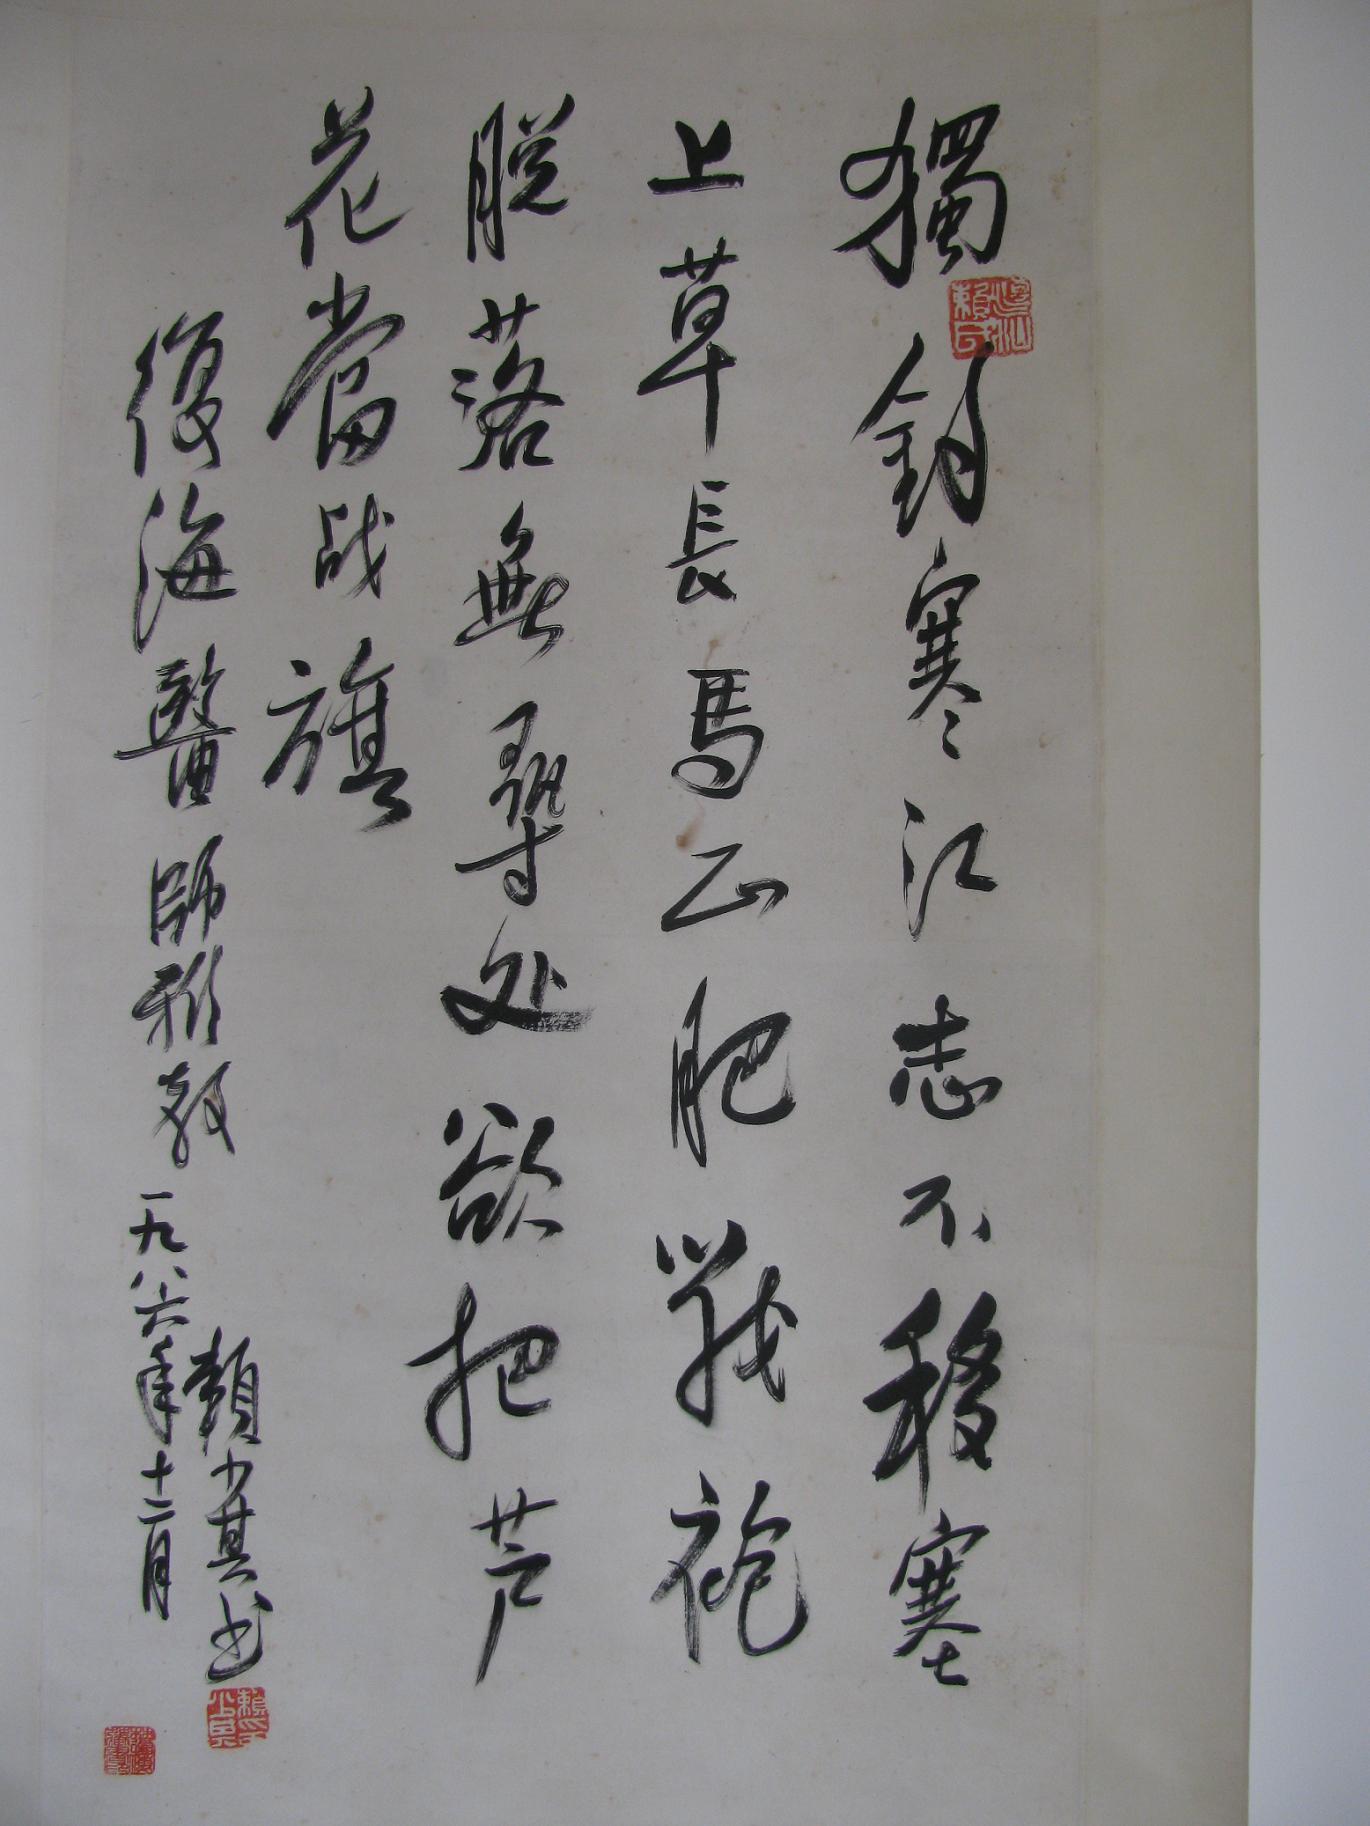 獨釣寒江志不移塞
上草長馬正肥戰袍
脱落無尋处欲把芦
花當战旗
復海醫師雅教 一九八六年十二月
賴少其书